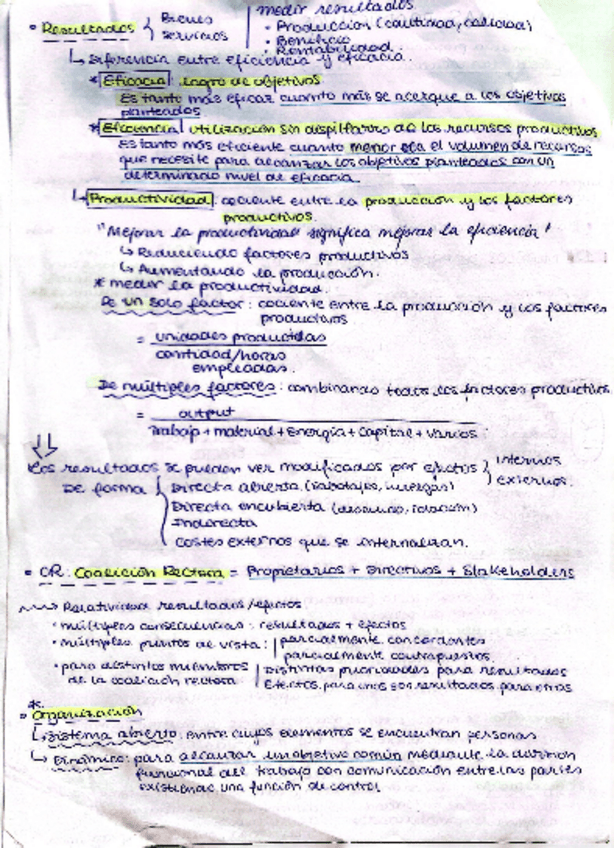 medir resultados.
• Resultados { Bienes
Servicios
• Producción (cantidad, calidad)
• Beneficio
• Rentabilidad.
↳ Diferencia entre eficiencia y eficacia.
* Eficacia: logro de objetivos
Es tanto más eficaz cuanto más se acerque a los objetivos
planteados
* Eficiencia: utilización sin despilfarro de los recursos productivos
Es tanto más eficiente cuanto menor sea el volumen de recursos
que necesite para alcanzar los objetivos planteados con un
determinado nivel de eficacia.
↳ Productividad: cociente entre la producción y los factores
productivos.
"Mejorar la productividad significa mejorar la eficiencia"
↳ Reduciendo factores productivos
↳ Aumentando la producción.
* medir la productividad.
De un solo factor: cociente entre la producción y los factores
productivos
= unidades producidas
cantidad/horas
empleadas.
De múltiples factores: combinando todos los factores productivos.
= output
Trabajo + material + Energía + Capital + Varios
Los resultados se pueden ver modificados por efectos } internos
externos.
De forma { Directa abierta (sabotajes, huelgas)
Directa encubierta (descuido,
Indirecta
Costes externos que se internalizan.
• CR: Coalición Rectora = Propietarios + Directivos + Stakeholders
Relatividad resultados/efectos
• múltiples consecuencias: resultados + efectos
• múltiples puntos de vista: | parcialmente concordantes
parcialmente contrapuestos
• para distintos miembros | Distintas prioridades para resultados
de la coalición rectora | Efectos para unos son resultados para otros
*
• Organización
↳ Sistema abierto: entre cuyos elementos se encuentran personas
↳ Dinámico: para alcanzar un objetivo común mediante la división
funcional del trabajo con comunicación entre las partes
existiendo una función de control